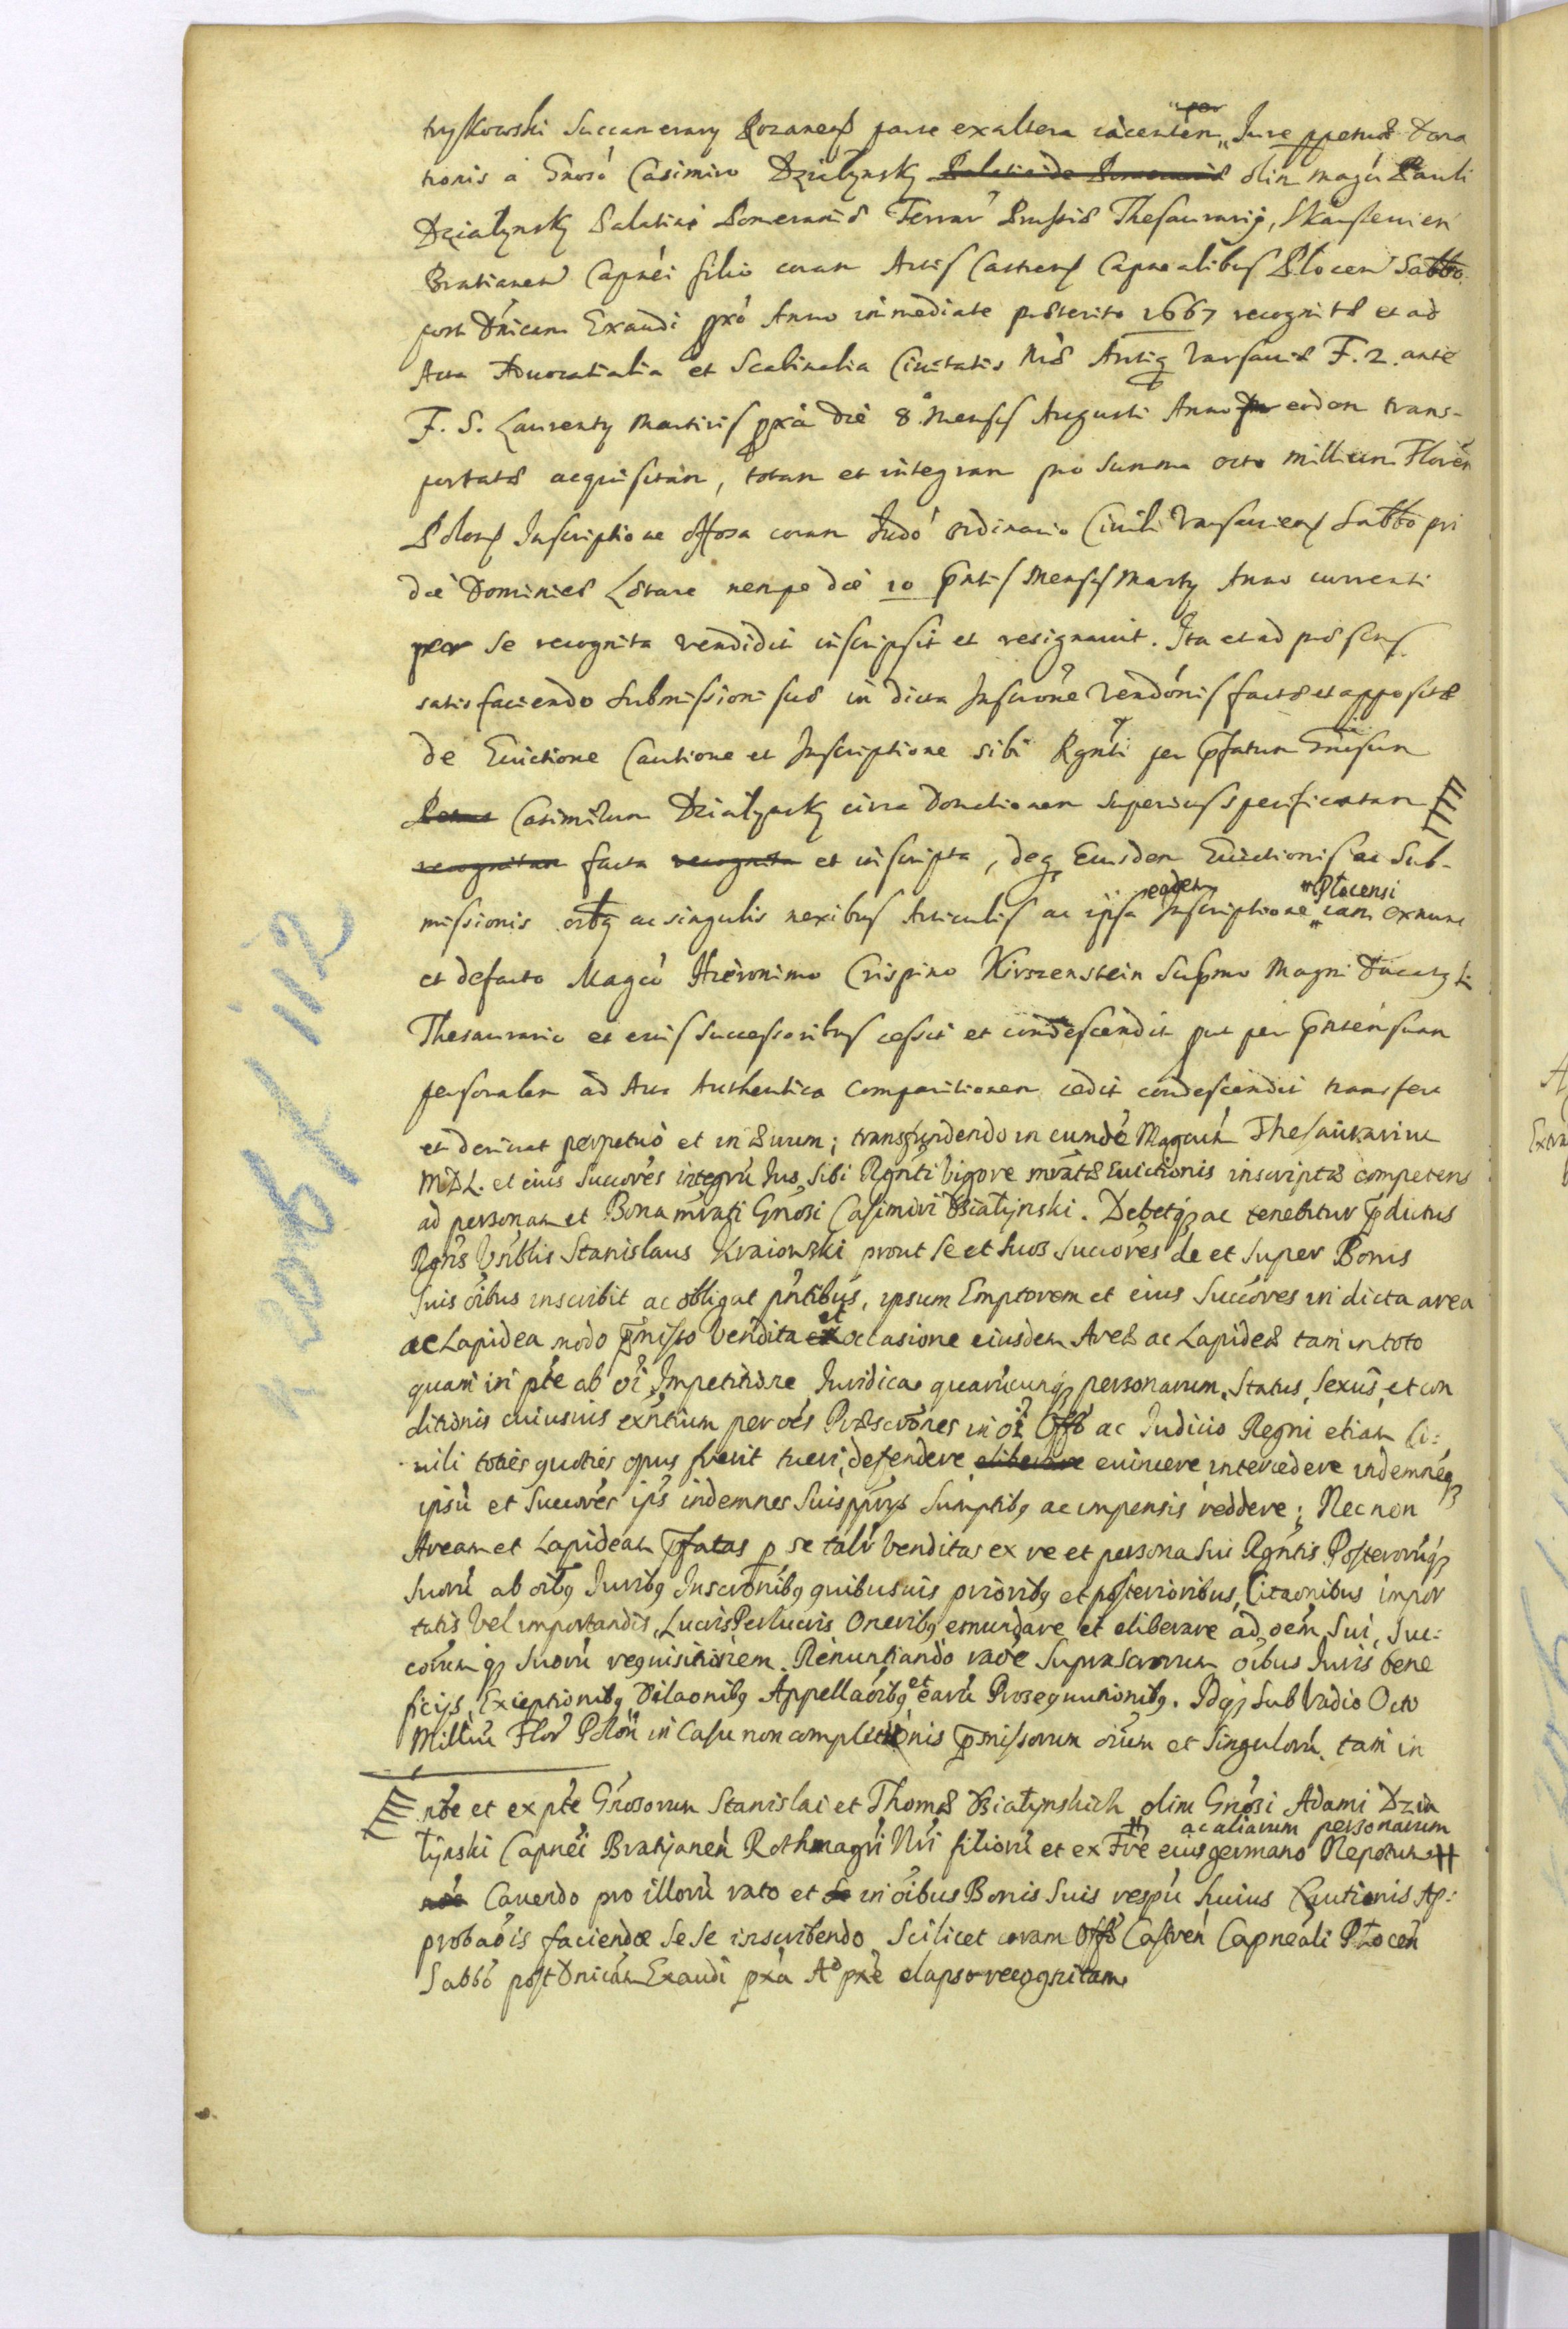 tryskowski Succamerary Rozanens̃ parte ex altera iacenten̄ per Jure ppetuæ Dona
tionis a Gnosó Casimiro Działynsky Palatinide Pomeraniæ olim magci Pauli
Działynsky Palatini Pomeraniæ Terrar̃ Prussiæ Thesaurarij, Skarszevien̄
Bratianen̄ Capnéi filio coram Actis Castren̄ Capnealibus Plocen̄ Sabbo
post Dnicam Exaudi pxó Anno immediate præterito 1667 recognitæ et ad
Acta Advocatialia et Scabinalia Civitatis Nræ Antiq Varsaviæ F. 2. ante
F. S. Laurenty Martiris pxá die 8 Mensis Augusti Anno eodem trans-
portatæ acquisitam, totam et integram pro Summa octo millium Floren̄
Polon̄ Inscriptione Hosa coram Judó ordinario Civili Varsavien̄ Sabbo pri
die Dominicæ Lætare nempe die 10 pntis Mensis Marty Anno currenti
per se recognita vendidit inscripsit et resignavit. Ita et ad præsens
satisfaciendo Submissioni suæ in dicta Inscrone Vendónis factæ et appositæ
de Evictione Cautione et Inscriptione sibi Rgnti per pfatum Gnosum
Casimirum Działynsky circa Donationem superius specificatam
recognitam facta recognita et inscripta, deq Eiusdem Evictionis ac Sub-
missionis oibq ac singulis nexibus Articulis ac ipsa eadem Inscriptione Plocensi iam exnunc
et defacto Magcó Hieronimo Crispino Kirszenstein Supmo Magni Ducatq Li
Thesaurario et eius Successoribus cessit et condescendit put per pntem suam
personalem ad Acta Authentica Comparitionem cedit condescendit transfert
et derivat perpetuò et in ævum; transfundendo in eunde Magcum Thesaurarium
M.D.L. et eius Succores integru Jus, Sibi Rgnti vigore mratæ Evictionis inscriptæ competens
ad personam et Bona mrati Gnosi Casimiri Działynski. Debetq ac tenebitur pdictus
Rgns Vrblis Stanislaus Kraiowski prout Se et Suos Succores de et super Bonis
Suis oibus inscribit ac obligat pntibus, ipsum Emptorem et eius Succores in dicta area
ac Lapidea modo pmisso Vendita et occasione eiusdem Areæ ac Lapideæ tam in toto
quam in pte ab oi Impetitione Juridica quarucunq personarum, Status, Sexus, et con
ditionis cuiusvis exntium per oes Præscrones in oi Offo ac Judicio Regni etiam Ci:
vili toties quoties opus fuerit tueri, defendere eliberare evincere intercedere indemneq
ipsu et Succores ips indemnes Suis pprys Sumptibq ac impensis reddere; Nec non
Aream et Lapideam pfatas p se talr Venditas ex re et persona Sui Rgntis Posterorúq
Suoru ab oibq Juribq Inscronibq quibusvis prioribq et posterioribus, Citaonibus impor
tatis Vel importandis, Lucris Perlucris Oneribq emundare et eliberare ad oem Sui, Suc-
corum q Suoru requisitionem. Renuntiando raoe Suprascrorum oibus Juris bene
ficys, Exceptionibq Dilaonibq Appellaoibq et earu Prosequutionibq. Idq Sub Vadio Octo
Milliu Flor Polon in Casu non completionis pmissorum oium et Singuloru, tam in
rõe et ex pte Gnosorum Stanislai et Thomæ Działynskich olim Gnosi Adami Dzia
łynski Capnei Bratjanen Rothmagri Nri filioru et ex Fre eius germano Nepotum ac aliarum personarum
Cavendo pro illoru rato et in oibus Bonis Suis respu huius Cautionis Ap:
probaois faciendæ Se Se inscribendo, Scilicet coram Offo Castren Capneali Płocen
Sabbo post Dnicam Exaudi pxa Ao pxe elapso recognitam
K 206/112